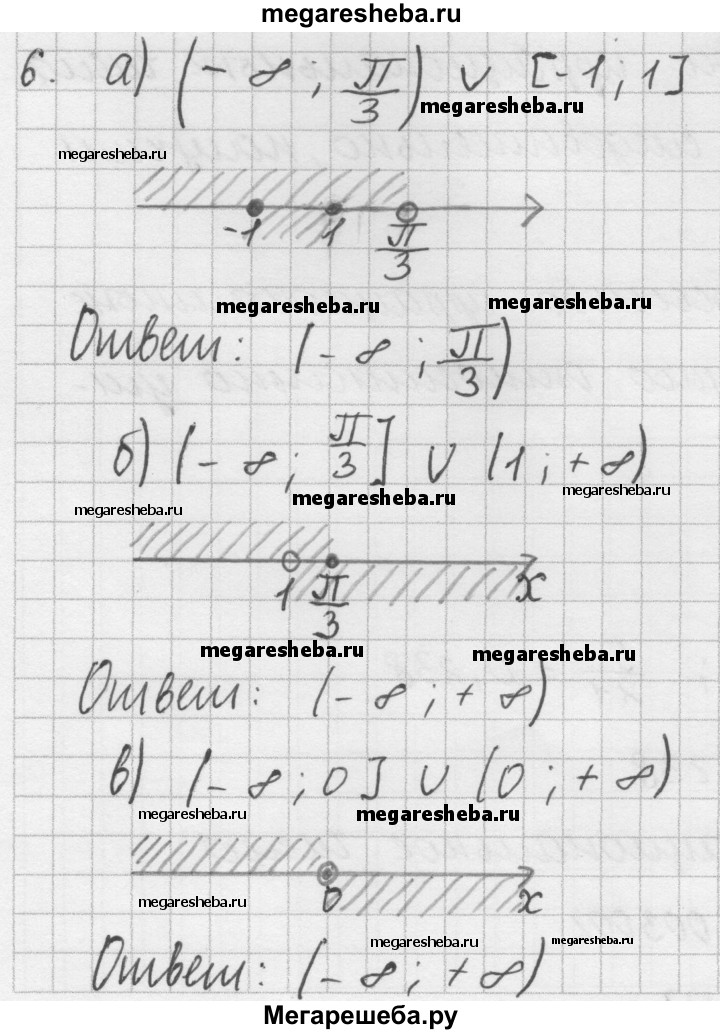 megaresheba.ru
6. а) (-∞; π/3) ∪ [-1; 1]
megaresheba.ru
megaresheba.ru
-1 1 π/3
megaresheba.ru megaresheba.ru
Ответ: (-∞; π/3)
б) (-∞; π/3] ∪ (1; +∞)
megaresheba.ru megaresheba.ru
megaresheba.ru
1 π/3 x
megaresheba.ru megaresheba.ru
Ответ: (-∞; +∞)
в) (-∞; 0] ∪ (0; +∞)
megaresheba.ru megaresheba.ru
0 x
megaresheba.ru
megaresheba.ru megaresheba.ru
Ответ: (-∞; +∞)
Мегарешеба.ру